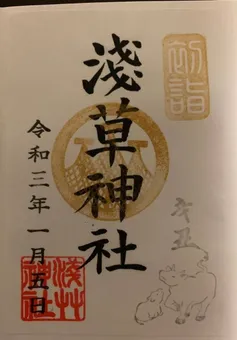 初詣
淺草神社
辛丑
令和三年一月五日
淺草
神社